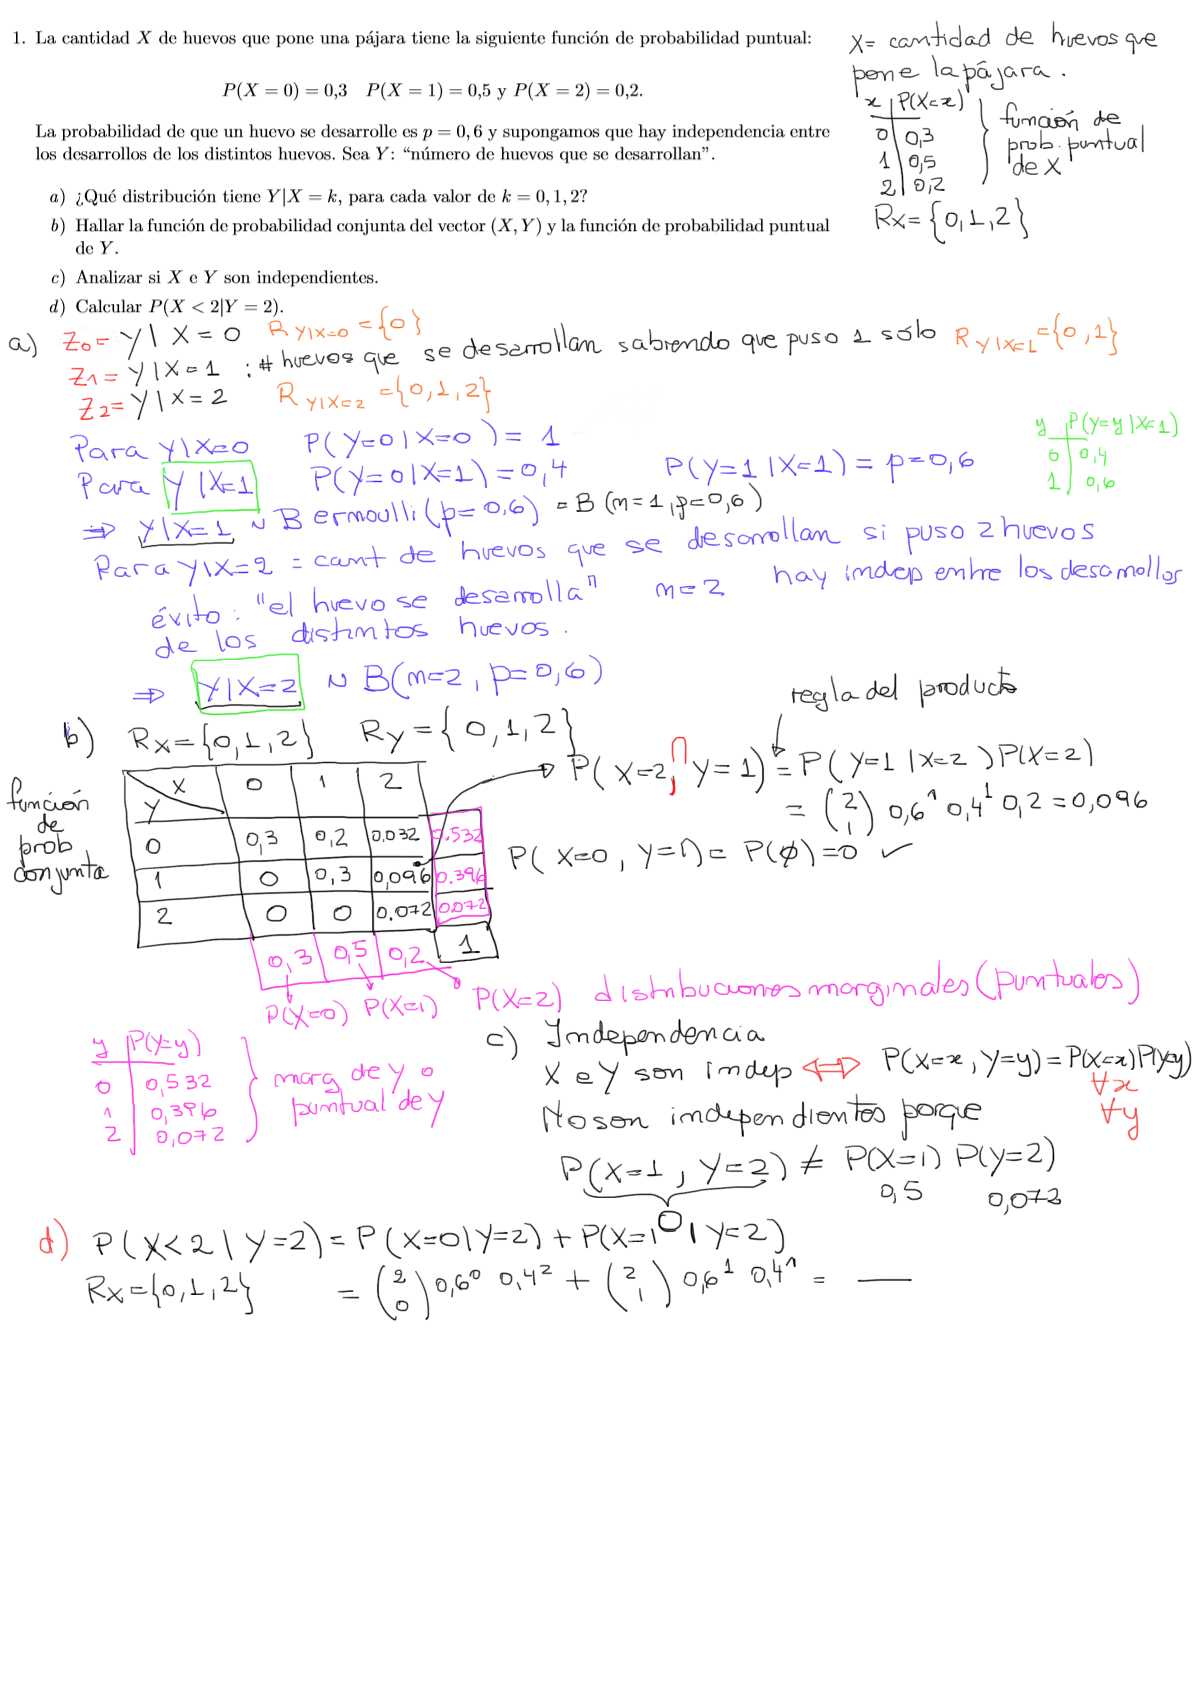 1. La cantidad X de huevos que pone una pájara tiene la siguiente función de probabilidad puntual:
P(X = 0) = 0,3   P(X = 1) = 0,5 y P(X = 2) = 0,2.
La probabilidad de que un huevo se desarrolle es p = 0,6 y supongamos que hay independencia entre
los desarrollos de los distintos huevos. Sea Y: "número de huevos que se desarrollan".
a) ¿Qué distribución tiene Y|X = k, para cada valor de k = 0, 1, 2?
b) Hallar la función de probabilidad conjunta del vector (X, Y) y la función de probabilidad puntual
de Y.
c) Analizar si X e Y son independientes.
d) Calcular P(X < 2|Y = 2).
X= cantidad de huevos que
pone la pájara.
x | P(X=x)
0 | 0,3
1 | 0,5
2 | 0,2
función de
prob. puntual
de X
Rx={0,1,2}
a) Z0= Y | X = 0   R Y|X=0 ={0}
Z1= Y | X = 1 : # huevos que se desarrollan sabiendo que puso 1 sólo   R Y|X=1 ={0,1}
Z2= Y | X = 2   R Y|X=2 ={0,1,2}
Para Y|X=0   P(Y=0|X=0)= 1
Para Y|X=1   P(Y=0|X=1)=0,4   P(Y=1|X=1)= p=0,6
y | P(Y=y|X=1)
0 | 0,4
1 | 0,6
⇒ Y|X=1 ~ Bernoulli(p=0,6) = B(n=1,p=0,6)
Para Y|X=2 = cant de huevos que se desarrollan si puso 2 huevos
éxito: "el huevo se desarrolla"   n=2   hay indep entre los desarrollos
de los distintos huevos.
⇒ Y|X=2 ~ B(n=2, p=0,6)
regla del producto
b) Rx={0,1,2}   Ry={0,1,2}
función
de
prob
conjunta
X   0   1   2
Y
0   0,3   0,2   0,032   0.532
1   0   0,3   0,096   0.396
2   0   0   0,072   0.072
0,3   0,5   0,2   1
P(X=2,∩ Y=1) = P(Y=1|X=2)P(X=2)
= (2 1) 0,6^1 0,4^1 0,2=0,096
P(X=0, Y=1)= P(∅)=0 ✓
P(X=0)   P(X=1)   P(X=2)   distribuciones marginales (puntuales)
y | P(Y=y)
0 | 0,532
1 | 0,396
2 | 0,072
marg de Y o
puntual de Y
c) Independencia
X e Y son indep ⇔ P(X=x, Y=y)=P(X=x)P(Y=y)
∀x
∀y
No son independientes porque
P(X=1, Y=2) ≠ P(X=1) P(Y=2)
0   0,5   0,072
d) P(X<2|Y=2)= P(X=0|Y=2)+P(X=1|Y=2)
Rx={0,1,2}   = (2 0) 0,6^0 0,4^2 + (2 1) 0,6^1 0,4^1 =